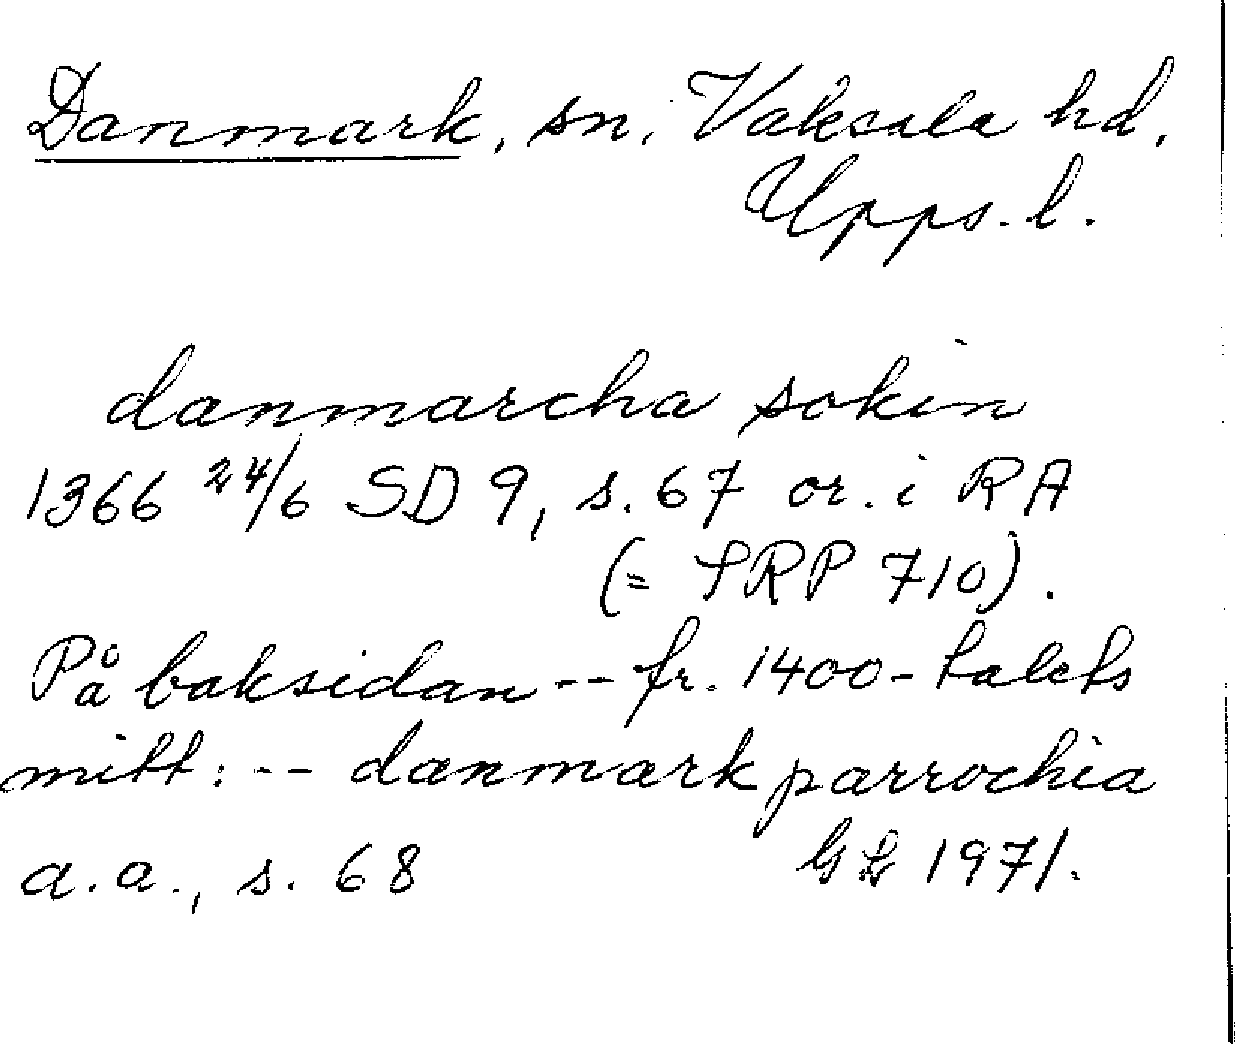 Danmark, sn. Vaksala hd.
Upps. l.
danmarcha sokin
1366 24/6 SD 9, s. 67 or. i RA
(= SRP 710).
På baksidan -- fr. 1400-talets
mitt: -- danmark parrochia
a.a., s. 68 1971.